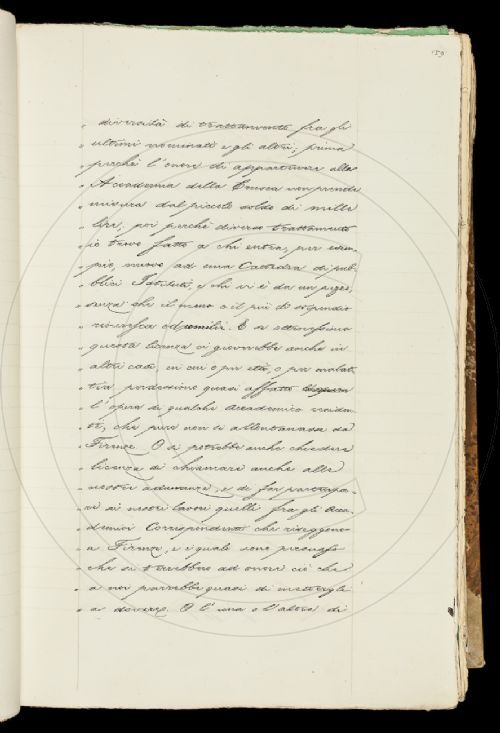 159
„ diversità di trattamento fra gli
„ ultimi nominati e gli altri; prima
„ perché l'onore di appartenere alla
„ Accademia della Crusca non prende
„ misura dal piccolo soldo di mille
„ lire, poi perché diverso trattamento
„ è fatto a chi entra, per esem-
„ pio, nuovo ad una Cattedra di pub-
„ blici Istituti, e chi vi è da un pezzo,
„ senza che il meno o il più di stipendio
„ E se ottenessimo
„ questa licenza ci gioverebbe anche in
„ altri casi, in cui o per età, o per malat-
„ tia perdessimo quasi affatto
„ l'opera di qualche Accademico residen-
„ te, che pure non si allontanasse da
„ Firenze. O si potrebbe anche chiedere
„ licenza di chiamare anche alle
„ nostre adunanze, e di far partecipa-
„ re ai nostri lavori quelli fra gli Acca-
„ demici Corrispondenti che risieggono
„ a Firenze, e i quali sono persuaso
„ che si terrebbero ad onore ciò che
„ a noi parrebbe quasi di mettergli
„ a dovere. O l'una o l'altra di